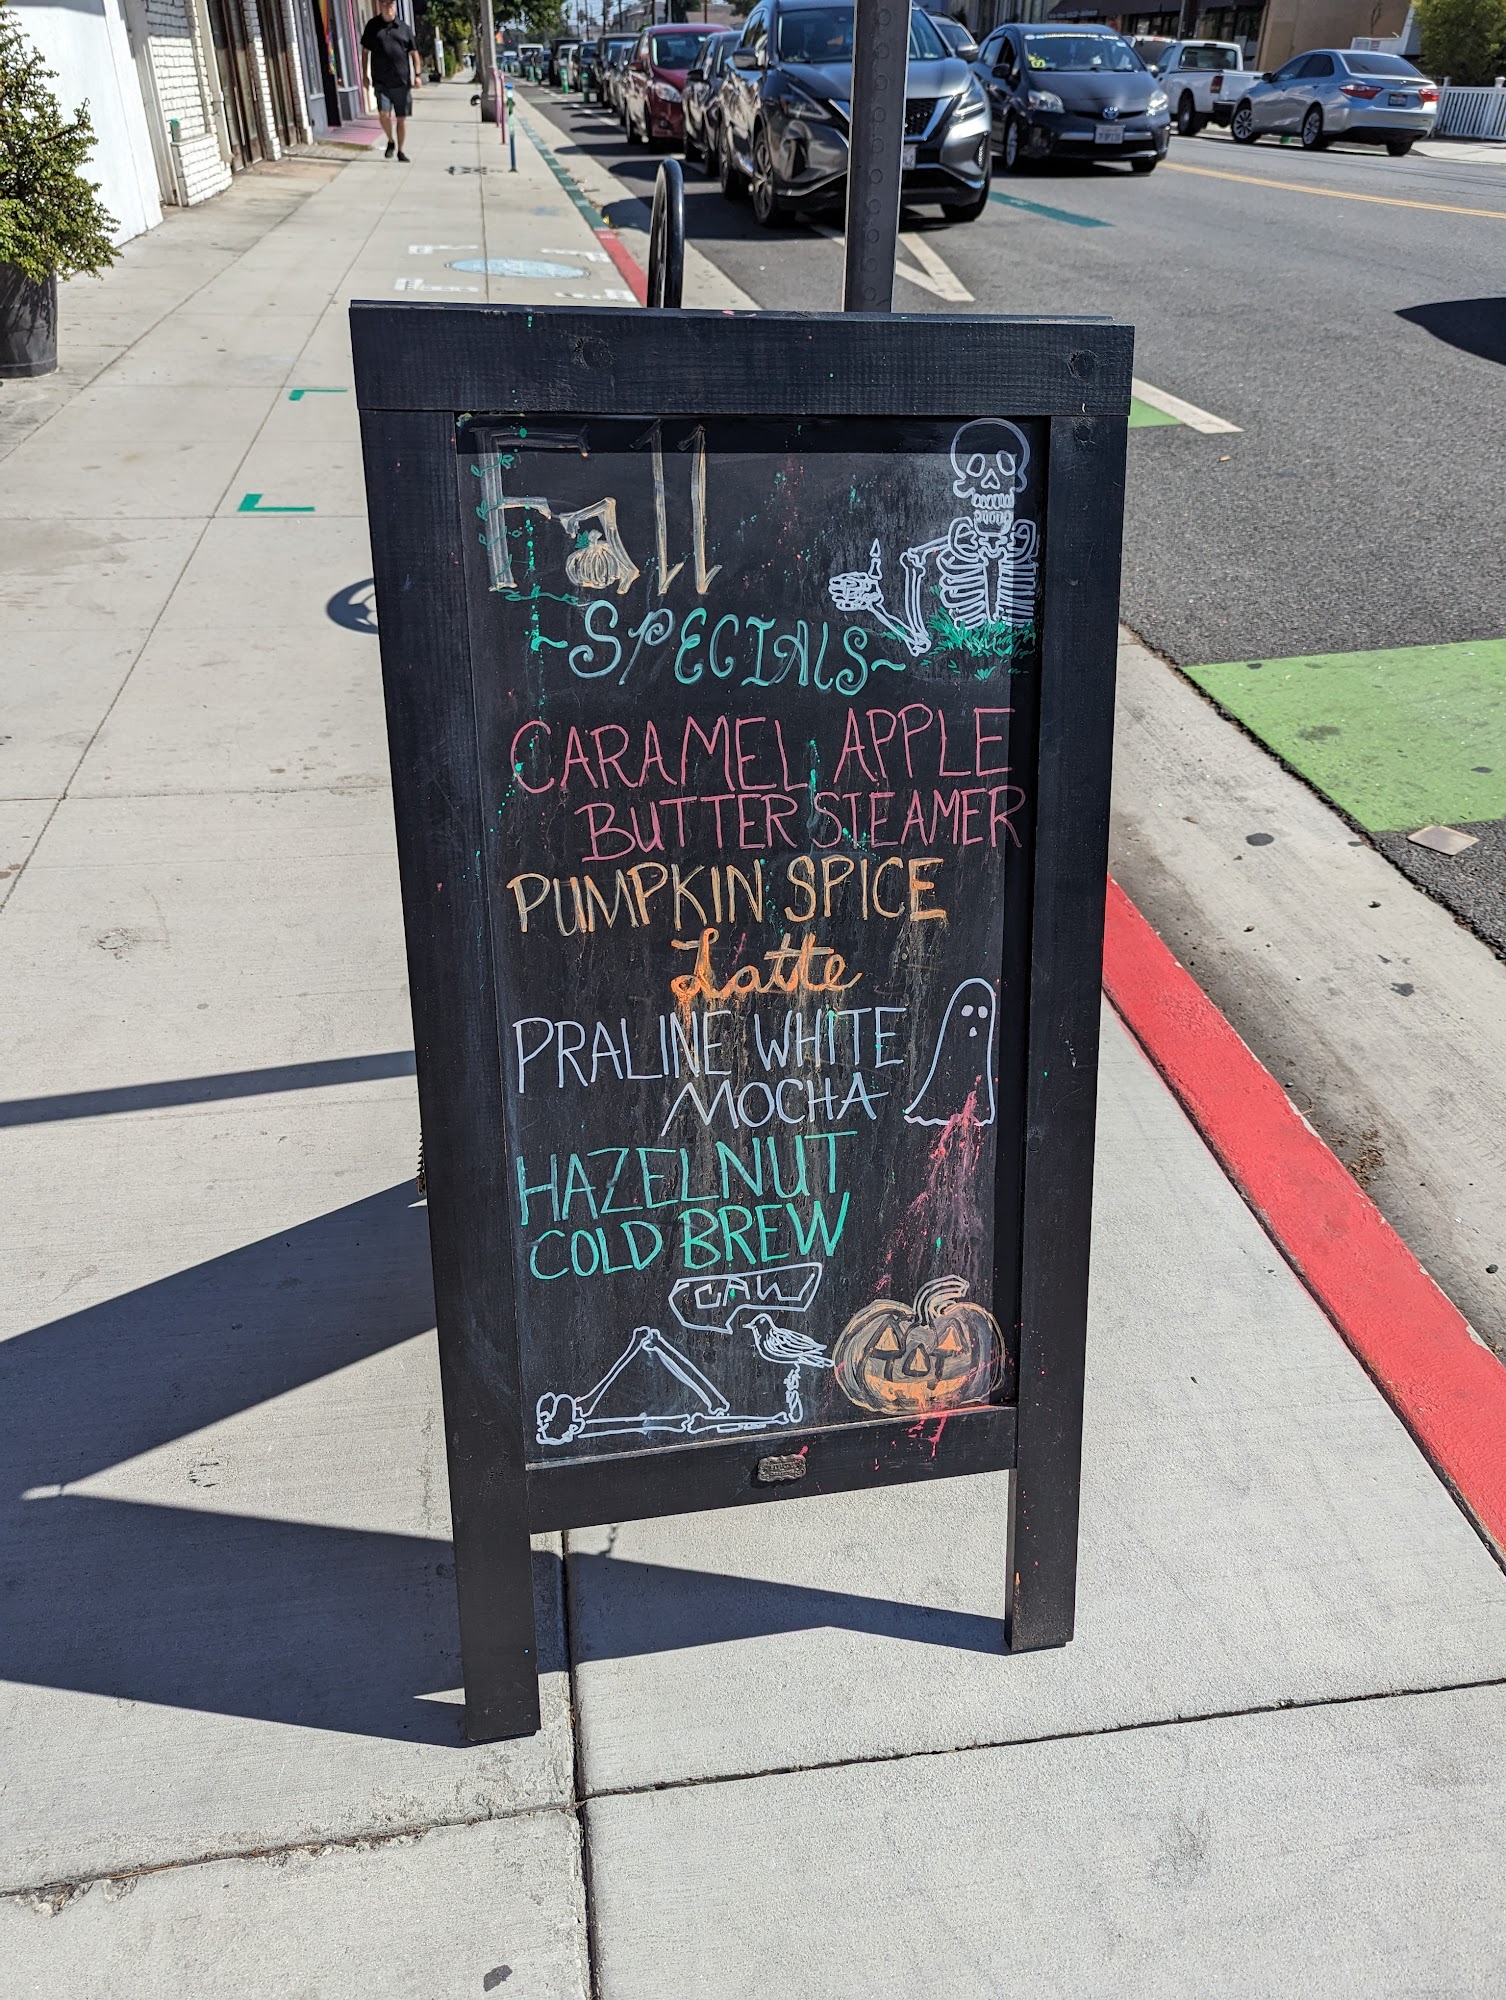 Fall
~SPECIALS~
CARAMEL APPLE
BUTTER STEAMER
PUMPKIN SPICE
Latte
PRALINE WHITE
MOCHA
HAZELNUT
COLD BREW
CAW